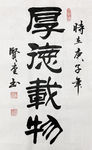 厚德載物
時在庚子年
賢堂書